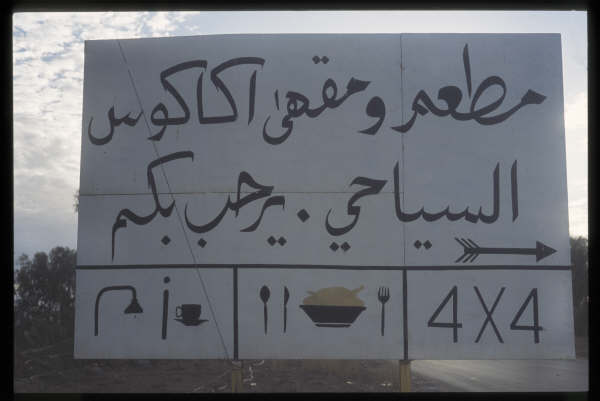 مطعم ومقهى اكاكوس
السياحي . يرحب بكم
i
4X4